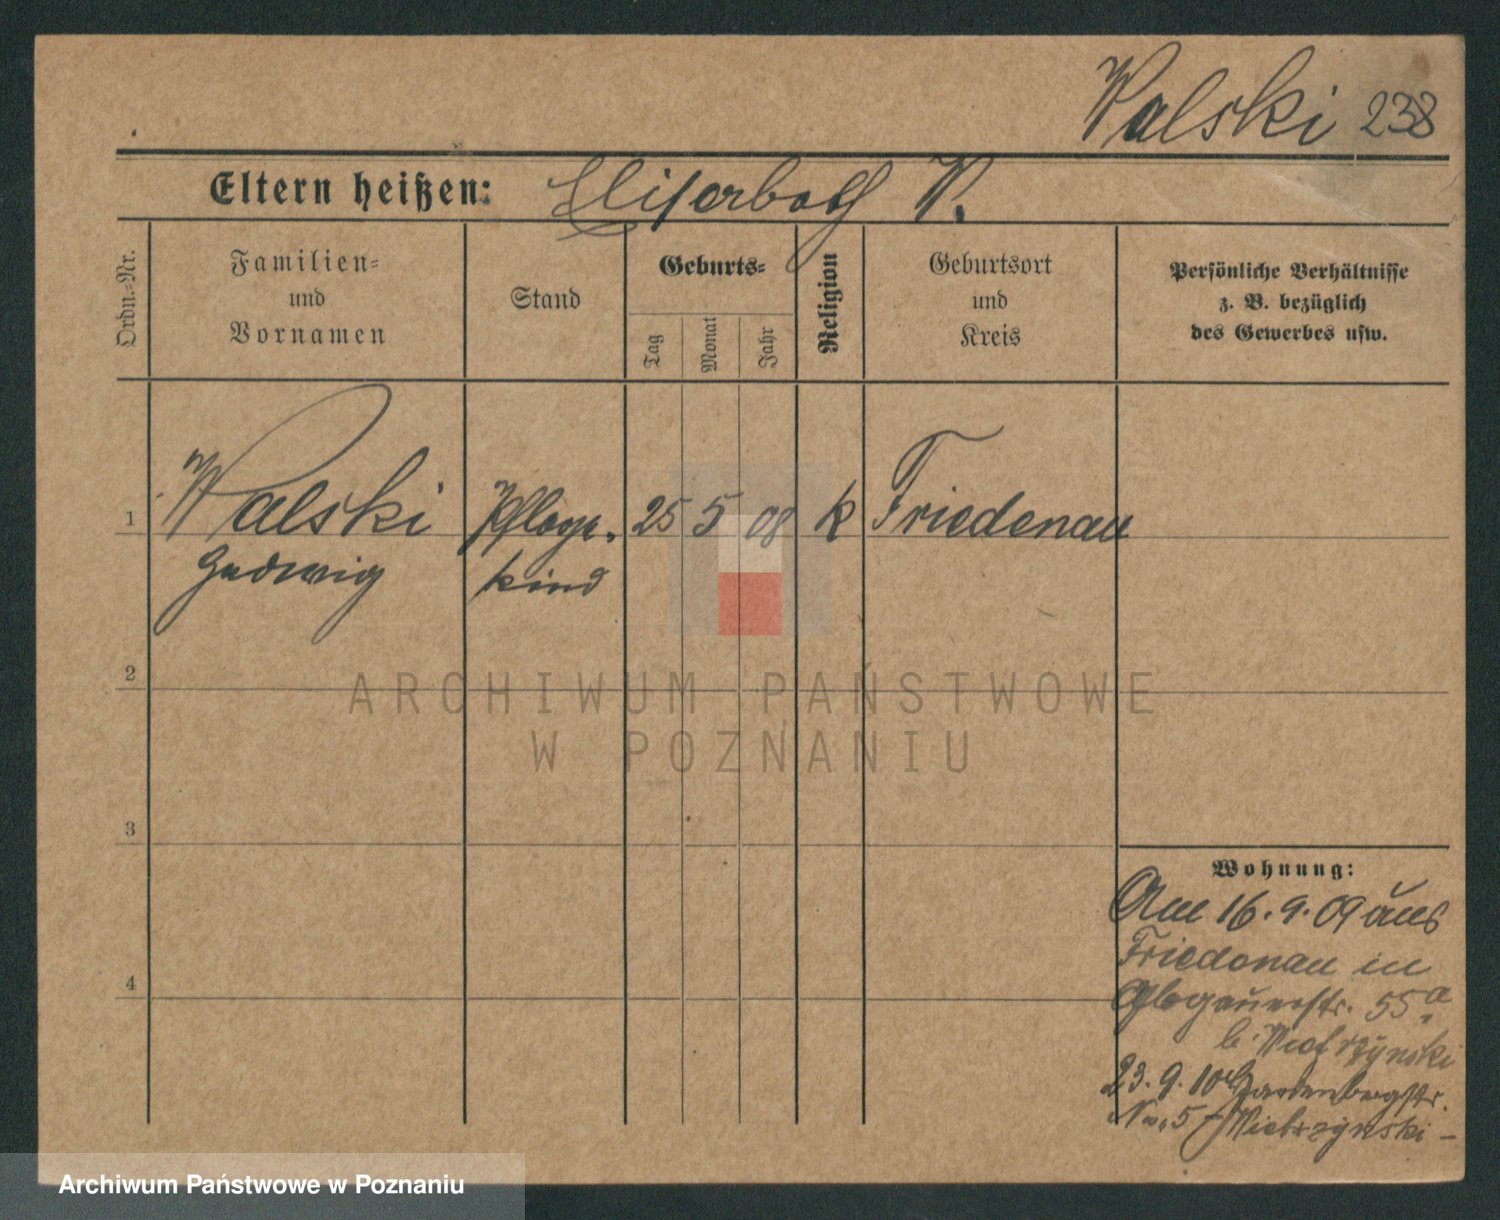 Walski 238
Eltern heißen: Elisabeth W.
Ordn.-Nr.
Familien-
und
Vornamen
Stand
Geburts-
Tag
Monat
Jahr
Religion
Geburtsort
und
Kreis
Persönliche Verhältnisse
z. B. bezüglich
des Gewerbes usw.
1 Walski Pflege- 25 5 08 k Friedenau
Hedwig kind
2
3
4
Wohnung:
Am 16.9.09 aus
Friedenau in
Glogauerstr. 55a
b. Wietrzynski
23.9.10 Hardenbergstr.
No. 5 Wietrzynski -
ARCHIWUM PAŃSTWOWE
W POZNANIU
Archiwum Państwowe w Poznaniu